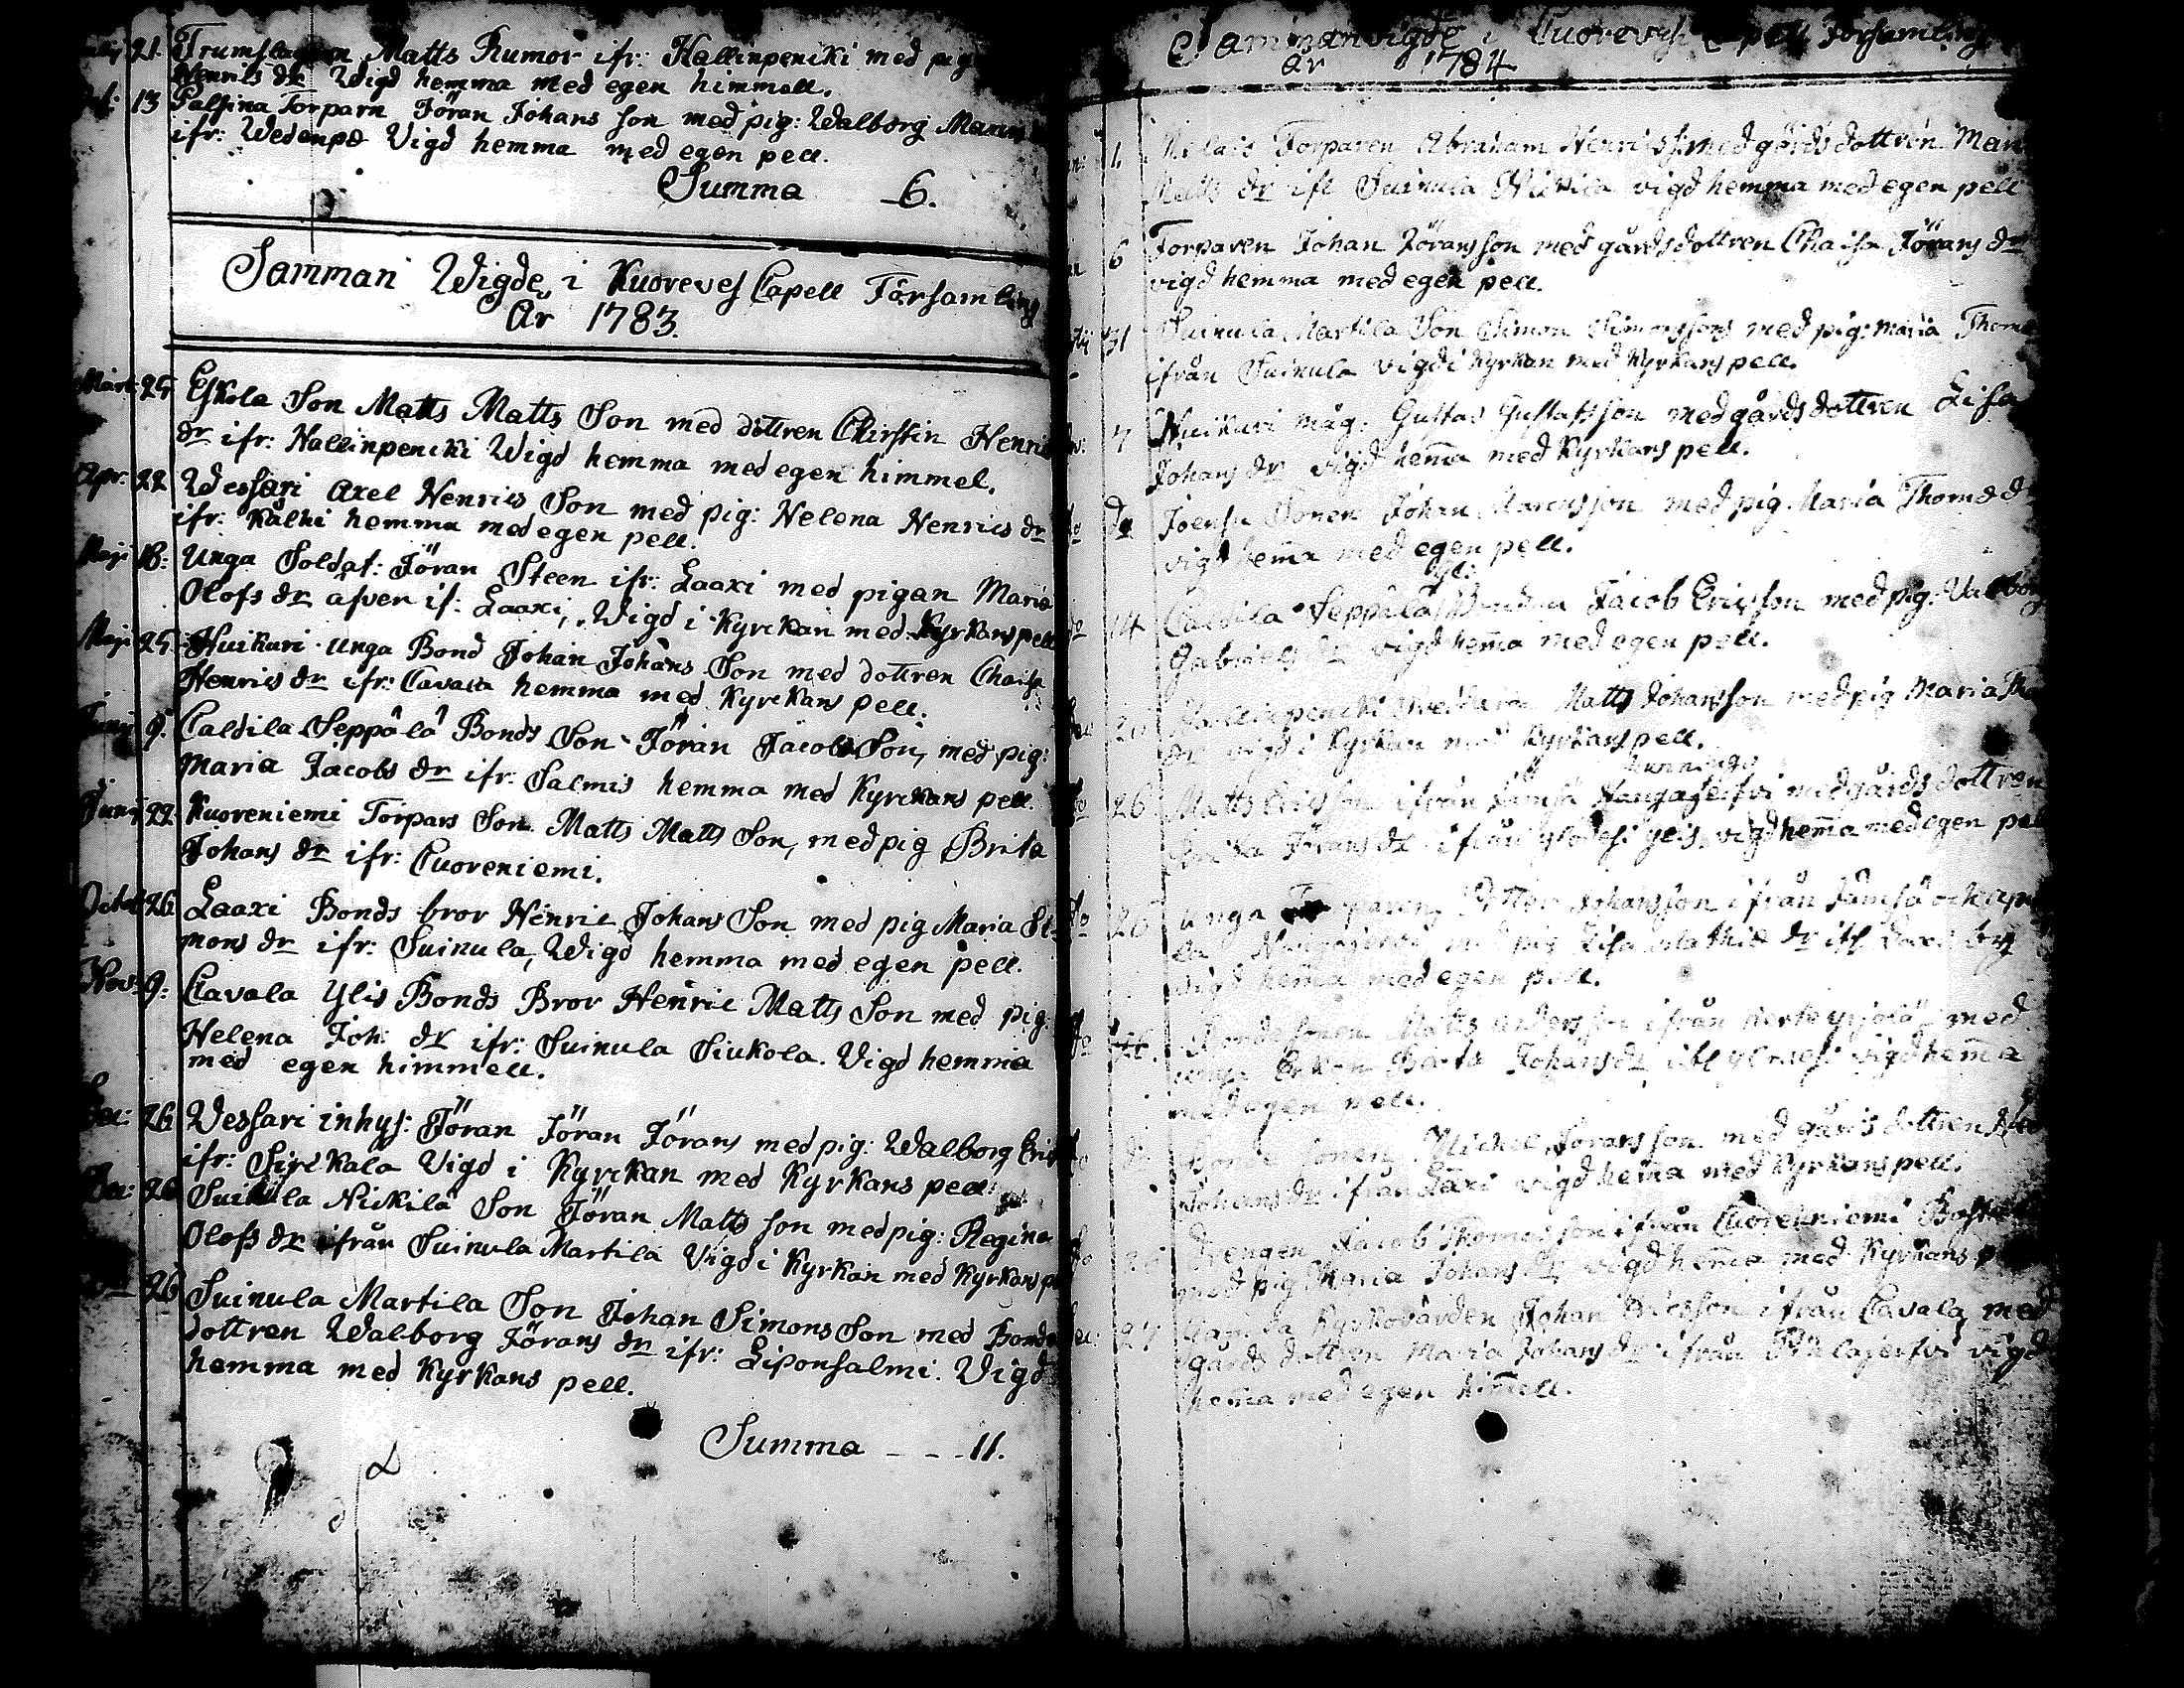 21. Trumslagaren Matts Rumor ifr: Hallinpencki med pig
Henrics dr Wigd hemma med egen himmell.
13 Palsina Torparn Jöran Johans son med pig: Walborg
ifr: Wedenpæ Vigd hemma med egen pell.
Summa 6.
Samman Wigde i Kuoreves Capell Församling
År 1783.
Mart: 25 Eskola Son Matts Matts Son med dottren Chirstin Henrics
dr ifr: Hallinpencki Wigd hemma med egen himmel.
Apr: 22 Wessari Axel Henrics Son med pig: Helena Henrics dr
ifr: Kålhi hemma med egen pell.
Maji 18: Unga Soldat: Jöran Steen ifr: Laaxi med pigan Maria
Olofs dr åfven if: Laaxi, Wigd i Kyrckan med Kyrkans pell
Maji 25 Huikari unga Bond Johan Johans Son med dottren Chaisa
Henrics dr ifr: Cavala hemma med Kyrckans pell.
Junij 9. Caldila Seppälä Bonds Son Jöran Jacobs Son, med pig:
Maria Jacobs dr ifr: Salmis hemma med Kyrckans pell.
Junij 22 Kuoreniemi Torpars Son Matts Matts Son, med pig Brita
Johans dr ifr: Cuoreniemi.
Octob 26 Laaxi Bonds bror Henric Johans Son med pig Maria Si-
mons dr ifr: Suinula, Wigd hemma med egen pell.
Nov: 9: Cavala Ylis Bonds Bror Henric Matts Son med pig:
Helena Joh: dr ifr: Suinula Siukola. Vigd hemma
med egen himmell.
Dec: 26 Wessari inhys: Jöran Jöran Jörans med pig: Walborg Erics
ifr: Sirckala Vigd i Kyrckan med Kyrkans pell:
Dec: 26 Suinula Nickilä Son Jöran Matts son med pig: Regina
Olofs dr ifrån Suinula Martila Vigd i Kyrkan med Kyrkans
26 Suinula Martila Son Johan Simons Son med Bonde
dottren Walborg Jörans dr ifr: Liponsalmi. Vigd
hemma med Kyrkans pell.
Summa - - - 11.
Sammanvigde i Cuorevesi Capell Församling
År 1784
1. Torparen Abraham Henricss: med gårds dottren
Matts dr ifl Suinula vigd hemma med egen pell
6 Torparen Johan Jöransson med gårdsdottren Chaisa Jörans dr
vigd hemma med egen pell.
31 Suinula Martila Son Simon Simonssons med pig: Maria
ifrån Suinula vigd i Kyrkan med Kyrkans pell.
7 Huikuri måg: Gustav Gustafsson med gårds dottren Lisa
Johans dr vigd hem̄a med Kyrkans pell.
do Joensu Sonen Johan Marcusson med pig. Maria
vigd hem̄a med egen pell.
14 Caldila Seppälä Jacob Ericsson med pig:
Gabriels dr vigd hem̄a med egen pell.
20 Hallinpencki Matts Johansson med pig Maria
dr vigd i Kyrkan med Kyrkans pell.
26 Matts Ericsson ifrån Jämsä med gårds dottren
Jörans dr ifrån vigd hem̄a med egen
26 unga Petter Johansson ifrån Jämsä
med pig Lisa
vigd hem̄a med egen pell.
Bonde sonen Matts Andersson ifrån med
Johans dr vigd hem̄a
med egen pell.
do Bonde sonen Michel Jöransson med gårds dottren
Johans dr ifrån Laxi vigd hem̄a med Kyrkans pell.
Drengen Jacob Thomasson ifrån Cuoreniemi
med pig Maria Johans dr vigd hem̄a med Kyrkans
27 Kyrkovärden Johan Ericsson ifrån Cavala med
gårds dottren Maria Johans dr ifrån vigd
hem̄a med egen himell.